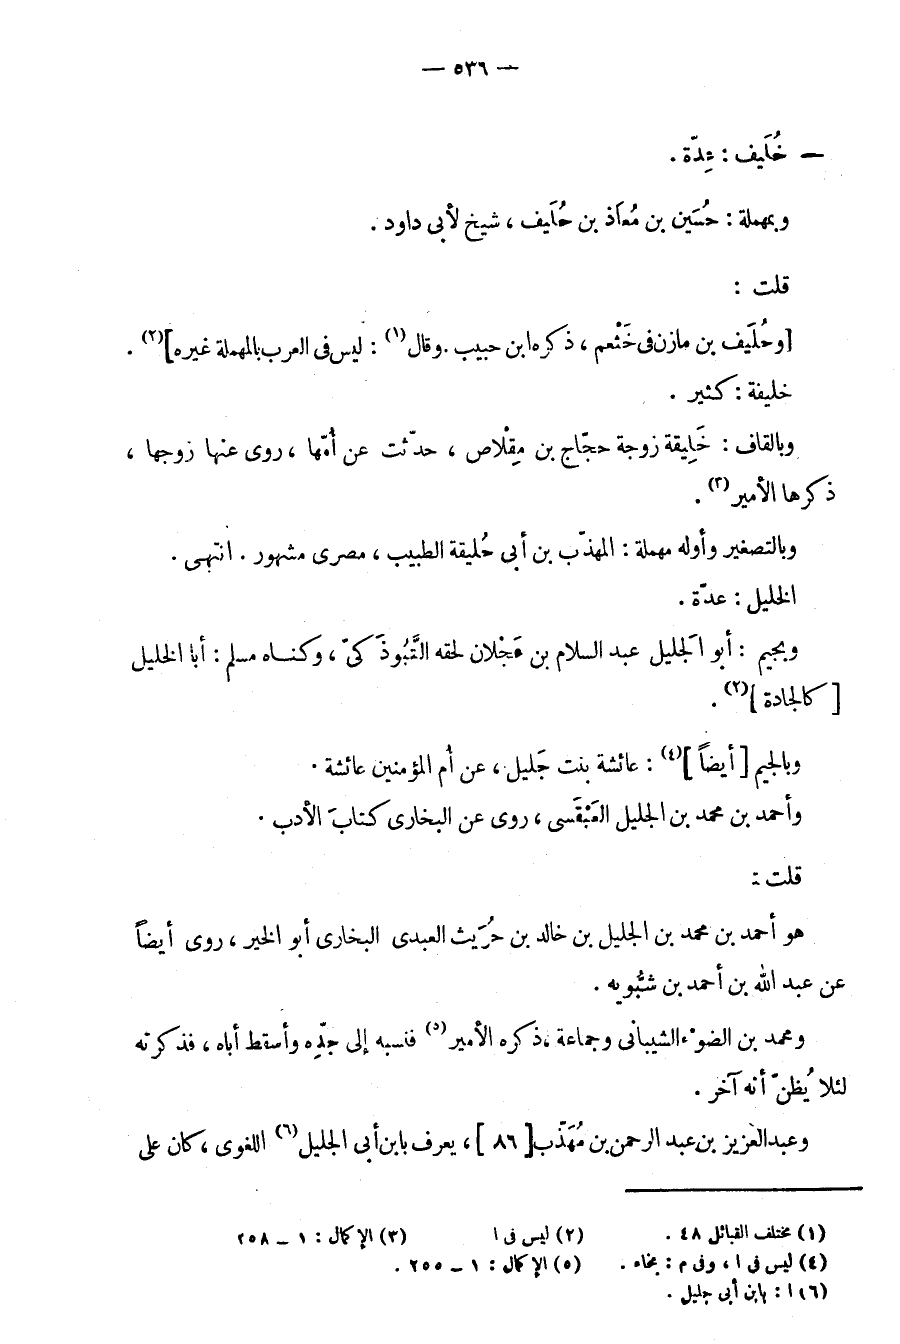 — ٥٣٦ —
— خُلَيف : عِدّة .
وبمهملة : حُسَين بن مُعاَذ بن حُلَيف ، شيخ لأبى داود .
قلت :
[وحُلَيف بن مازن فى خَثْعم ، ذكره ابن حبيب . وقال (١) : ليس فى العرب بالمهملة غيره] (٢) .
خليفة : كثير .
وبالقاف : خَلِيقة زوجة حجّاج بن مِقْلاص ، حدّثت عن أُمّها ، روى عنها زوجها ،
ذكرها الأمير (٣) .
وبالتصغير وأوله مهملة : المهذّب بن أبى حُليقة الطبيب ، مصرى مشهور . انتهى .
الخليل : عدّة .
وبجيم : أبو الَجليل عبد السلام بن عَجْلان لحقه التَّبُوذَكىّ ، وكناه مسلم : أبا الخليل
[ كالجادة ] (٢) .
وبالجيم [ أيضاً ] (٤) : عائشة بنت جَليل ، عن أم المؤمنين عائشة .
وأحمد بن محمد بن الجليل العَبْقَسى ، روى عن البخارى كتابَ الأدب .
قلت :
هو أحمد بن محمد بن الجليل بن خالد بن حرُيَث العبدى البخارى أبو الخير ، روى أيضاً
عن عبد الله بن أحمد بن شبُّويه .
ومحمد بن الضوْء الشيبانى وجماعة ، ذكره الأمير (٥) فنسبه إلى جدِّه وأسقط أباه ، فذكرته
لئلا يُظنّ أنه آخر .
وعبد العزيز بن عبد الرحمن بن مُهَذّب [ ٨٦ ] ، يعرف بابن أبى الجليل (٦) اللغوى ، كان على
(١) مختلف القبائل ٤٨ . (٢) ليس فى ا (٣) الإكمال : ١ – ٢٥٨
(٤) ليس فى ا ، وفى م : بخاء . (٥) الإكمال : ١ – ٢٥٥ .
(٦) ا : بابن أبى جليل .